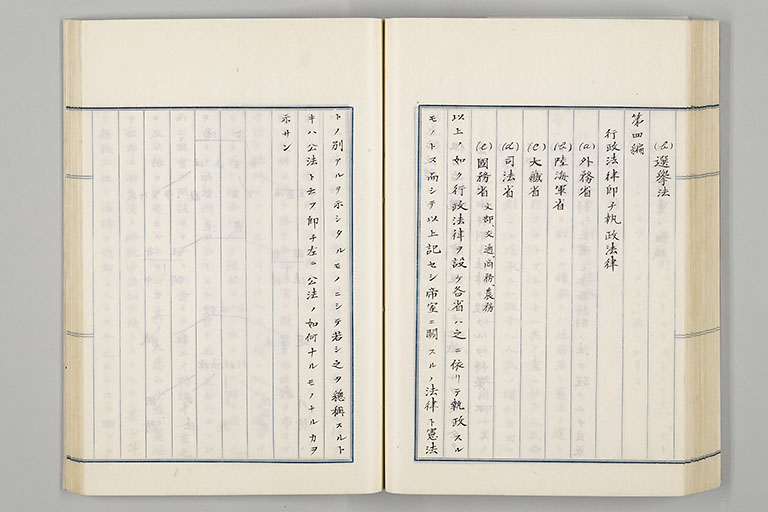 (b) 選擧法
第四編
行政法律卽チ執政法律
(a) 外務省
(b) 陸海軍省
(c) 大藏省
(d) 司法省
(e) 國務省 文部、交通、商務、農務
以上ノ如ク行政法律ヲ設ケ各省ハ之ニ依リテ執政スル
モノトス而シテ以上記セシ帝室ニ關スルノ法律ト憲法
トノ別アルヲ示シタルモノニシテ若シ之ヲ總稱スルト
キハ公法ト云フ卽チ左ニ公法ノ如何ナルモノナルカヲ
示サン